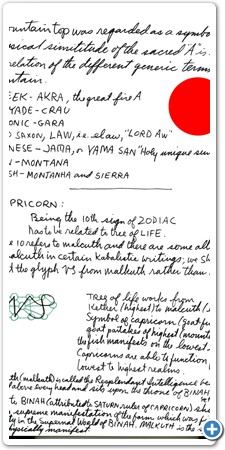 ountain top was regarded as a symbo
sical similitude of the sacred "A" is.
relation of the different generic term
ntain.
EEK - AKRA, the great fire A
YADE - CRAU
ONIC - GARA
O SAXON, LAW, i.e. slaw, "LORD AW"
NESE - JAMA, or YAMA SAN "Holy unique sun
- MONTANA
SH - MONTANHA and SIERRA
PRICORN:
Being the 10th sign of ZODIAC
has to be related to tree of LIFE.
e 10 refers to malcuth and there are some all
alcuth in certain Kabalistic writings; we Sh
t the glyph VS from malkuth rather than.
Tree of life works from
Kether (highest) to malcuth (s
Symbol of capricorn (Goat fis
goat partakes of highest (mount
the fish manifests on the lowest.
Capricorns are able to function
lowest to highest realms.
th (malkuth) is called the Resplendant Intelligence be
alts every head and sits upon the throne of BINAH
to BINAH (attributed to SATURN ruler of CAPRICORN) she
supreme manifestation of the form which was f
ty in the supernal World of BINAH. MALKUTH is the
ypically manifest